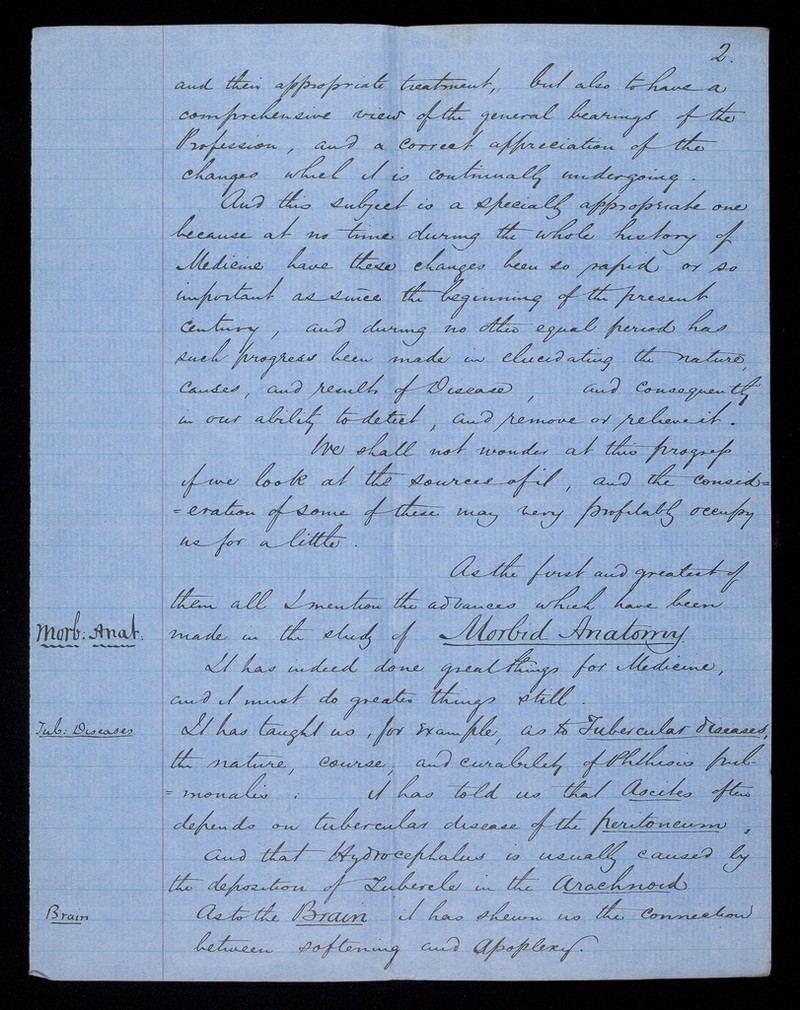 2.
and their appropriate treatment, but also to have a
comprehensive view of the general bearings of the
Profession, and a correct appreciation of the
changes which it is continually undergoing.
And this subject is a specially appropriate one
because at no time during the whole history of
Medicine have these changes been so rapid or so
important as since the beginning of the present
century, and during no other equal period has
such progress been made in elucidating the nature,
causes, and results of Disease, and consequently
in our ability to detect, and remove or relieve it.
We shall not wonder at this progress
if we look at the sources of it, and the consid=
=eration of some of these may very profitably occupy
us for a little.
As the first and greatest of
them all I mention the advances which have been
Morb: Anat: made in the study of Morbid Anatomy
It has indeed done great things for Medicine,
and it must do greater things still.
Tub: Diseases It has taught us, for example, as to Tubercular diseases,
the nature, course, and curability of Phthisis pul-
=monalis: it has told us that Ascites often
depends on tubercular disease of the peritoneum,
and that Hydrocephalus is usually caused by
the deposition of Tubercle in the Arachnoid
Brain As to the Brain it has shewn us the connection
between softening and Apoplexy.